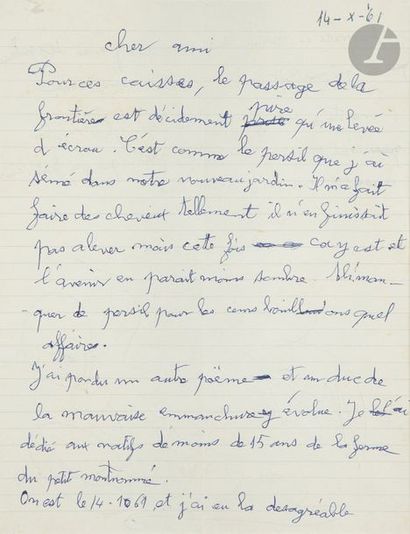 14-X-'61
cher ami
Pour ces caisses, le passage de la
frontière est décidément pire qu'une levée
d'écrou. C'est comme le persil que j'ai
sémé dans notre nouveau jardin. Il m'a fait
faire des cheveux tellement il n'en finissait
pas a lever mais cette fois ca y est et
l'avenir en parait moins sombre.
-quer de persil pour les cours bouillons quel
affaire.
J'ai pondu un autre poëme et un duc de
la mauvaise emmanchure y évolue. Je l'ai
dédié aux natifs de moins de 15 ans de la ferme
du petit montrommé.
On est le 14.1061 et j'ai eu la desagréable